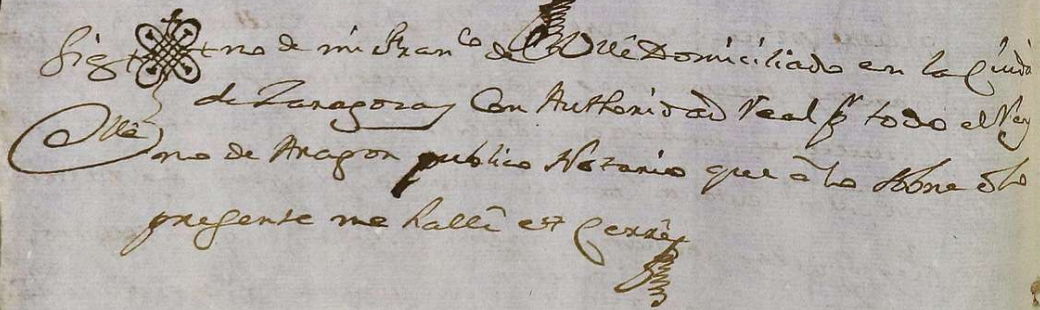 Sig no de mi Franco de Domiciliado en la Ciuda
de Zaragoza y Con Authoridad Real pr todo el Rey
no de Aragon publico Notario que â lo Sobre dho
presente me hallê et Cerrê